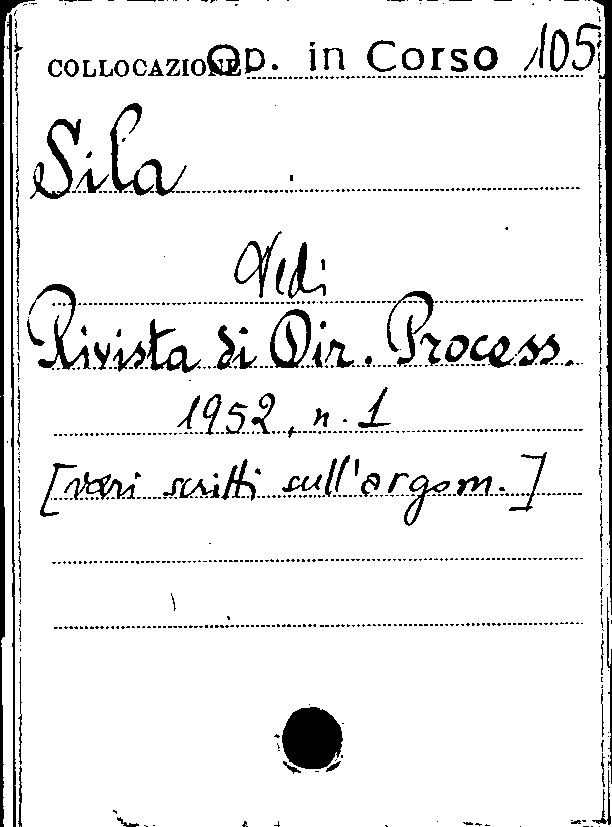 COLLOCAZIONE Op. in Corso 105
Sila
Vedi
Rivista di Dir. Process.
1952, n. 1
[vari scritti sull'argom.]